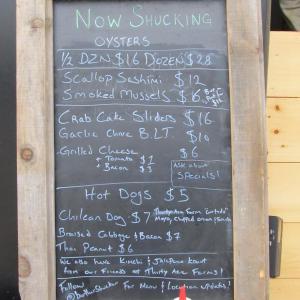 NOW SHUCKING
OYSTERS
1/2 DZN $16 DOZEN $28
Scallop Sashimi $12
Smoked Mussels $6
Crab Cake Sliders $16
Garlic Chive B.L.T. $10
Grilled Cheese $6
+ Tomato $1
+ Bacon $3
ASK about
SPECIALS!
Hot Dogs $5
Chilean Dog $7 Thirty Acre Farm
Mayo, Chopped onion
Braised Cabbage & Bacon $7
Thai Peanut $6
We also have Kimchi & Jalapeno Kraut
from our Friends at Thirty Acre Farms!
Follow
For Menu & Location updates!